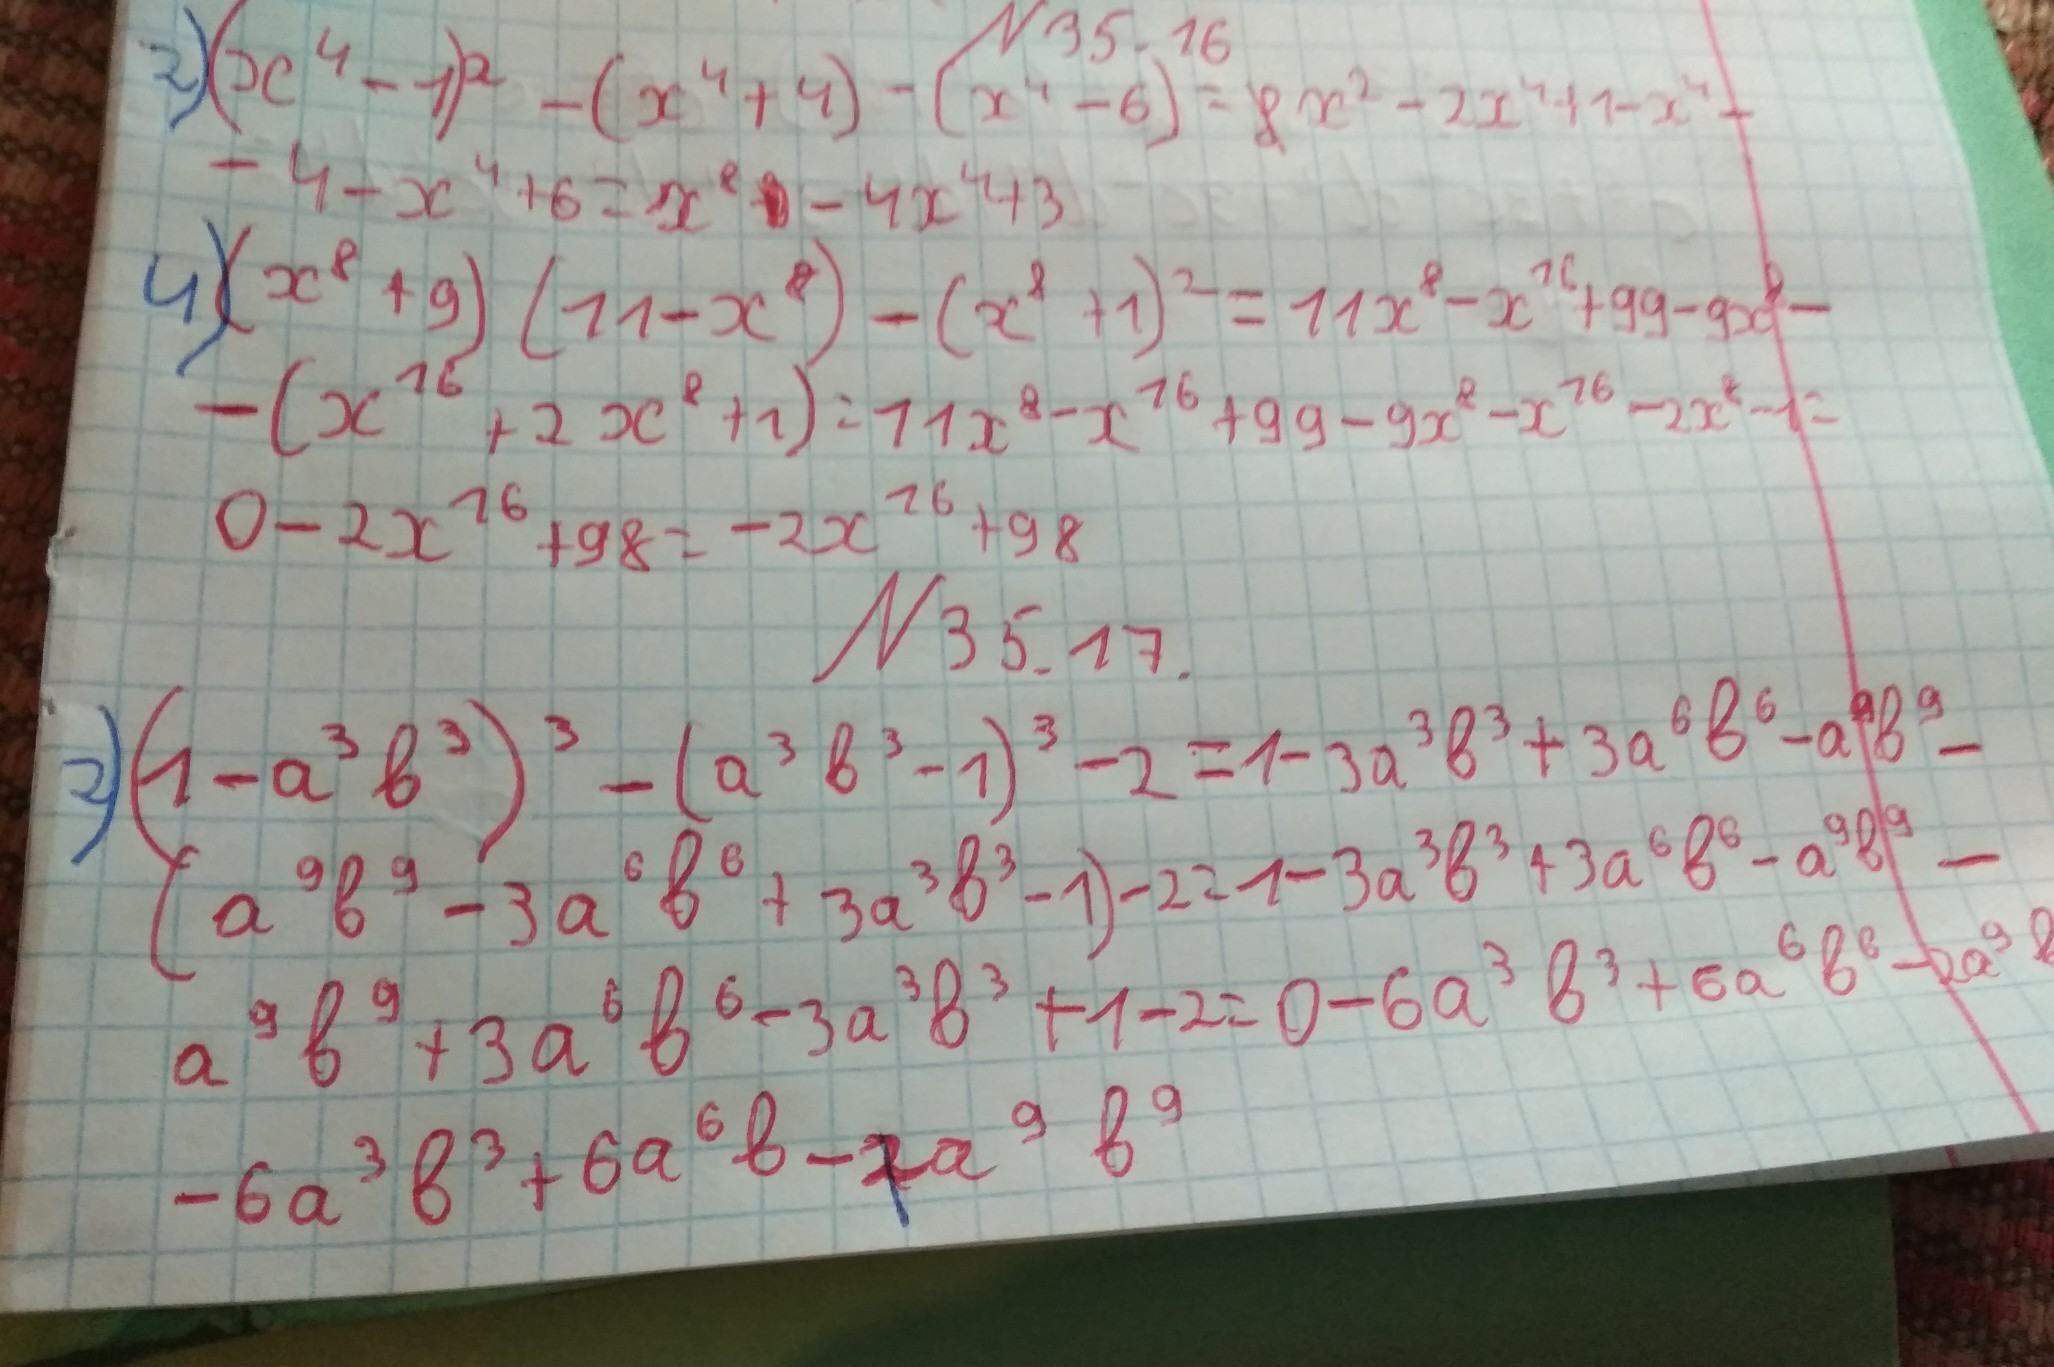 N35.16
2)(x⁴-1)² -(x⁴+4)-(x⁴-6)=8x²-2x⁴+1-x⁴-
-4-x⁴+6=x⁸-4x⁴+3
4)(x⁸+9)(11-x⁸)-(x⁸+1)²=11x⁸-x¹⁶+99-9x⁸-
-(x¹⁶+2x⁸+1)=11x⁸-x¹⁶+99-9x⁸-x¹⁶-2x⁸-1=
0-2x¹⁶+98=-2x¹⁶+98
N35.17.
2)(1-a³b³)³-(a³b³-1)³-2=1-3a³b³+3a⁶b⁶-a⁹b⁹-
(a⁹b⁹-3a⁶b⁶+3a³b³-1)-2=1-3a³b³+3a⁶b⁶-a⁹b⁹-
a⁹b⁹+3a⁶b⁶-3a³b³+1-2=0-6a³b³+6a⁶b⁶-2a⁹b
-6a³b³+6a⁶b-2a⁹b⁹